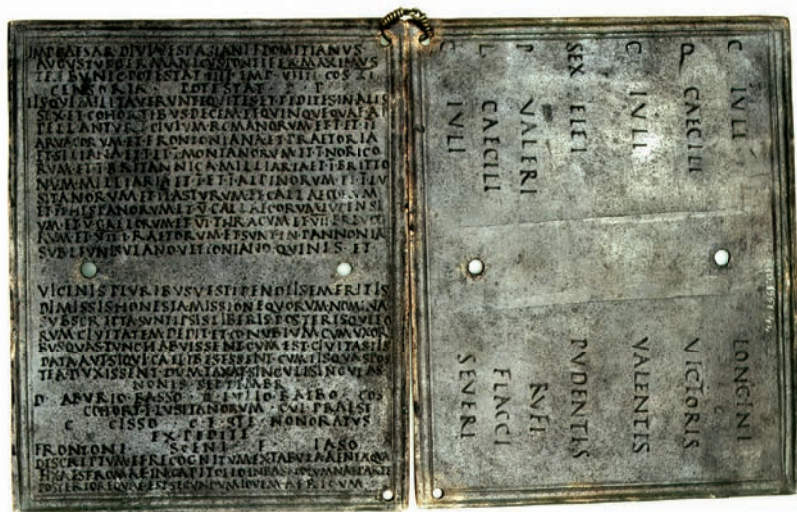 IMP CAESAR DIVI VESPASIANI F DOMITIANVS
AVGVSTVS GERMANICVS PONTIFEX MAXIMVS
TRIBVNIC POTESTAT IIII IMP VIIII COS XI
CENSORIA · POTESTAT · P · P
IIS QVI MILITAVERVNT EQVITES ET PEDITES IN ALIS
SEX ET COHORTIBVS DECEM ET QVINQVE QVAE AP
PELLANTVR I CIVIVM ROMANORVM ET I ET II
ARVACORVM ET FRONTONIANA ET PRAETORIA
ET SILIANA ET I ET I MONTANORVM ET I NORICO
RVM ET I BRITANNICA MILLIARIA ET I BRITTO
NVM MILLIARIA ET I ET II ALPINORVM ET I LV
SITANORVM ET II ASTVRVM ET CALLAECORVM
ET II HISPANORVM ET V CALLAECORVM LVCENSI
VM ET V GALLORVM ET VI THRACVM ET VII BREVCO
RVM ET VIII RAETORVM ET SVNT IN PANNONIA
SVB L FVNISVLANO VETTONIANO QVINIS ET
VICINIS PLVRIBVSVE STIPENDIIS EMERITIS
DIMISSIS HONESTA MISSIONE QVORVM NOMINA
SVBSCRIPTA SVNT IPSIS LIBERIS POSTERISQVE EO
RVM CIVITATEM DEDIT ET CONVBIVM CVM VXORI
BVS QVAS TVNC HABVISSENT CVM EST CIVITAS IIS
DATA AVT SIQVI CAELIBES ESSENT CVM IIS QVAS POS
TEA DVXISSENT DVMTAXAT SINGVLI SINGVLAS
NONIS SEPTEMBR
D ABVRIO BASSO Q IVLIO BALBO COS
COHORT I LVSITANORVM CVI PRAEST
C CISSO C F STE HONORATVS
EXPEDITE
FRONTONI SCENI F IASO
DISCRIPTVM ET RECOGNITVM EX TABVLA AENEA QVAE
FIXA EST ROMAE IN CAPITOLIO IN BASI COLVMNAE PARTE
POSTERIORE QVAE EST SECVNDVM IOVEM AFRICVM
C IVLI LONGINI
P CAECILI VICTORIS
C IVLI VALENTIS
SEX ELEI PVDENTIS
P VALERI RVFI
L CAECILI FLACCI
C IVLI SEVERI